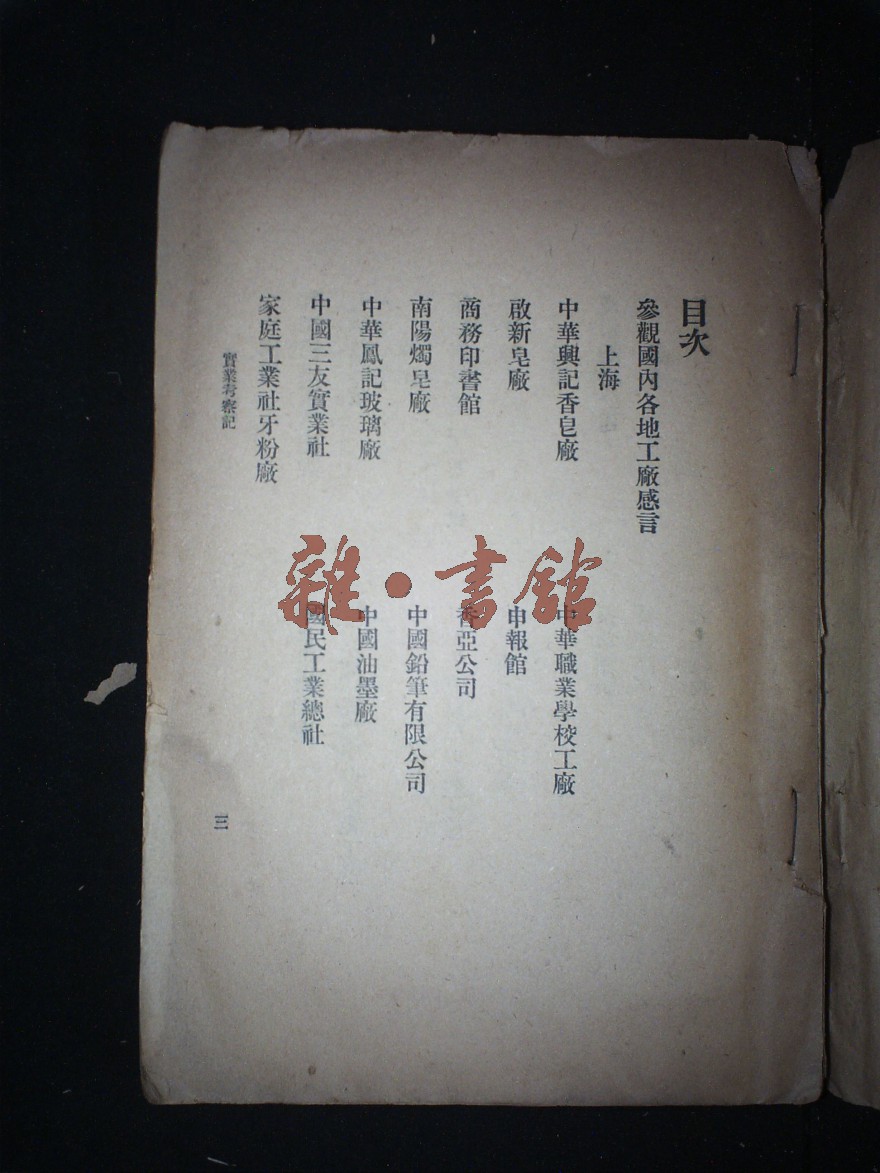 目次
參觀國內各地工廠感言
上海
中華興記香皂廠
中華職業學校工廠
啟新皂廠
申報館
商務印書館
香亞公司
南陽燭皂廠
中國鉛筆有限公司
中華鳳記玻璃廠
中國油墨廠
中國三友實業社
國民工業總社
家庭工業社牙粉廠
實業考察記
三
雜·書館